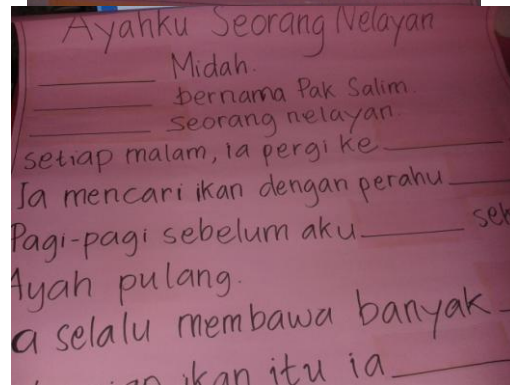 Ayahku Seorang Nelayan
______ Midah.
______ bernama Pak Salim.
______ seorang nelayan
setiap malam, ia pergi ke ______
Ia mencari ikan dengan perahu ______
Pagi-pagi sebelum aku ______
Ayah pulang.
a selalu membawa banyak
ikan itu ia ______